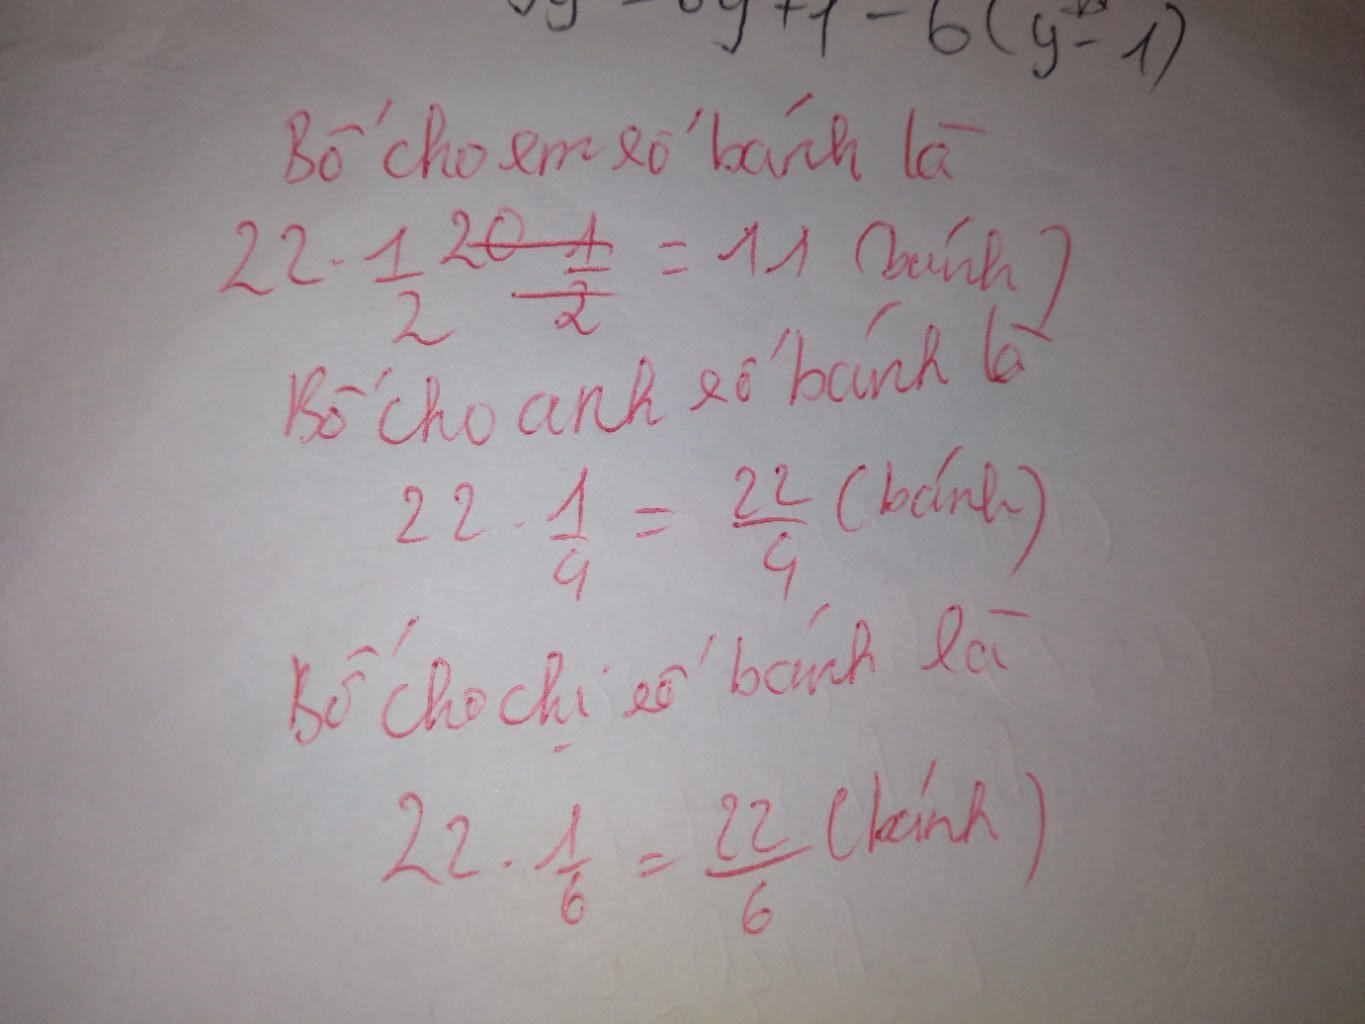 y + 1 - 6(y - 1)
Bố cho em số bánh là
22 . 1/2 = 11 (bánh)
Bố cho anh số bánh là
22 . 1/4 = 22/4 (bánh)
Bố cho chị số bánh là
22 . 1/6 = 22/6 (bánh)